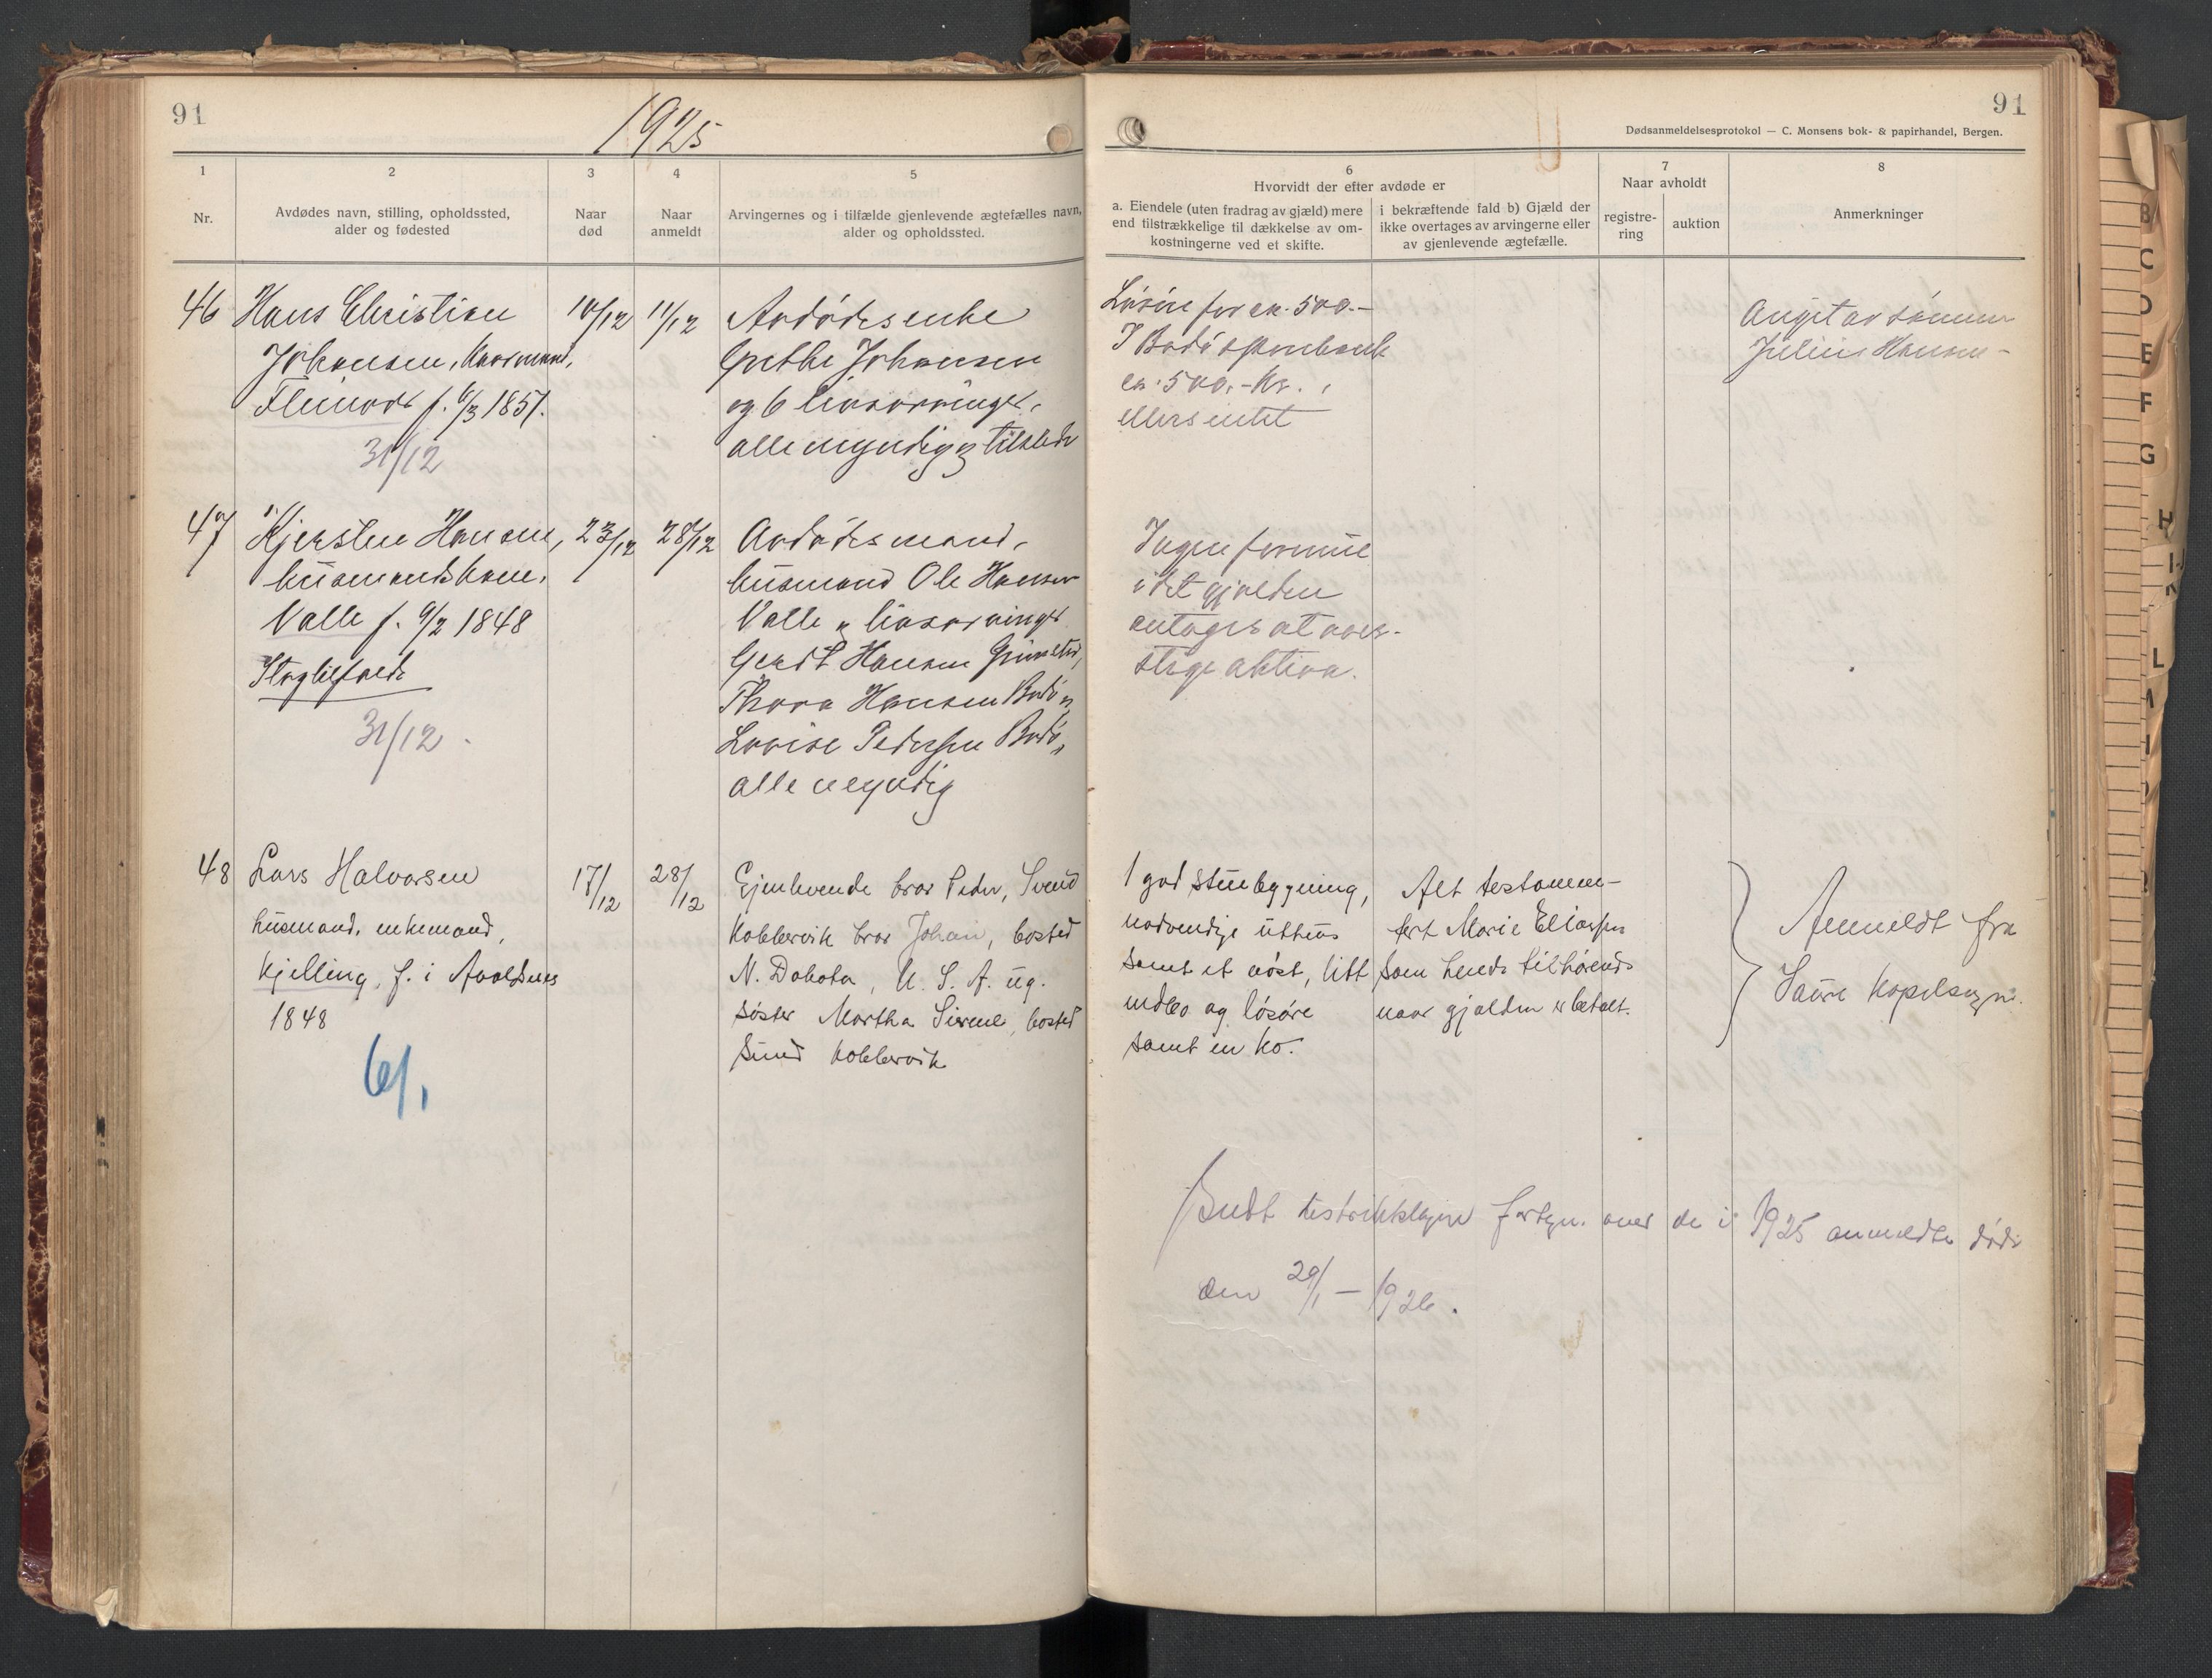 91
1925
1
2
3
4
5
Nr.
Avdødes navn, stilling, opholdssted,
alder og fødested
Naar
død
Naar
anmeldt
Arvingernes og i tilfælde gjenlevende ægtefælles navn,
alder og opholdssted.
46
Hans Christian
Johansen, Kaarmand,
f. 6/3 1851.
31/12
10/12
11/12
Avdødes enke
Grethe Johansen
og 6 livsarvinger,
alle myndig og tilstede
47
Kjerstine Hansen,
husmandskone,
Valle f. 9/2 1848
31/12
23/12
28/12
Avdødes mand,
husmand Ole Hansen
Valle og livsarvinger
Gerdt Hansen Grimstad,
Thora Hansen Bodø og
Lovise Pedersen Bodø,
alle myndig
48
Lars Halvorsen
husmand, enkemand,
Kjelling, f. i Avaldsnes
1848
6/1
17/12
28/12
Gjenlevende bror Peder, Svend
Kobbervik bror Johan, bosted
N. Dakota, U. S. A. og.
søster Martha Sirene, bosted
Sund Kobbervik
91
Dødsanmeldelsesprotokol — C. Monsens bok- & papirhandel, Bergen.
6
7
8
Hvorvidt der efter avdøde er
Naar avholdt
a. Eiendele (uten fradrag av gjæld) mere
end tilstrækkelige til dækkelse av om-
kostningerne ved et skifte.
i bekræftende fald b) Gjæld der
ikke overtages av arvingerne eller
av gjenlevende ægtefælle.
registre-
ring
auktion
Anmerkninger
Løsøre for ca. 500.-
I Bodø sparebank
ca. 500,- Kr.
ellers intet
Angit av sønnen
Julius Hansen -
Ingen formue
idet gjælden
antages at over-
stige aktiva.
1 god stuebygning,
nødvendige uthus
samt et nøst, litt
indbo og løsøre
samt en ko.
Alt testamen-
tert Marie Eliassen
som hende tilhørende
naar gjælden er betalt.
Anmeldt fra
Saura Kapelsogn.
Sendt distriktslægen fortegn. over de i 1925 anmeldte døde
den 20/1 – 1926.